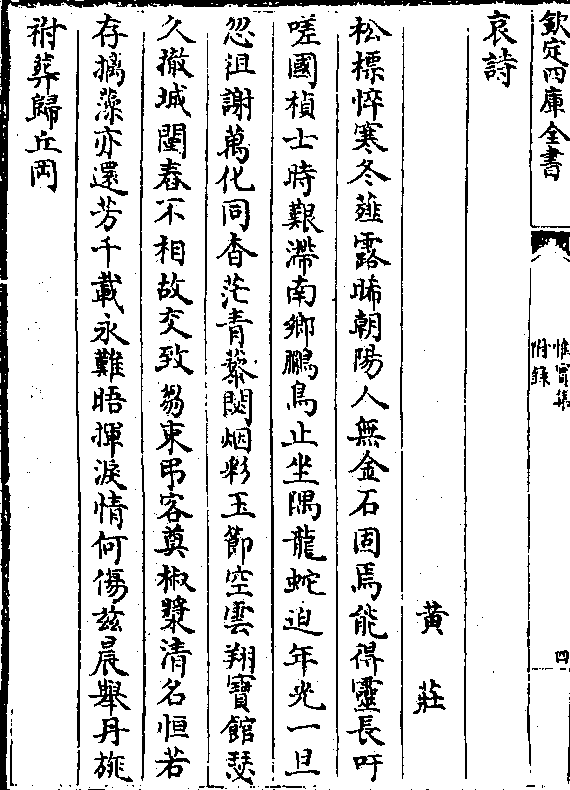 欽定四庫全書
惟實集
附録
四
哀詩
黄莊
松標悴寒冬薤露晞朝陽人無金石固焉能得靈長吁
嗟國楨士時艱滯南鄉鵬鳥止坐隅龍蛇迫年光一旦
忽沮謝萬化同杳茫青藜閟烟彩玉節空雲翔寶館瑟
久撤城闉舂不相故交致芻束弔客奠椒漿清名恒若
存摛藻亦還芳千載永難晤揮淚情何傷兹晨舉丹旐
祔葬歸丘岡